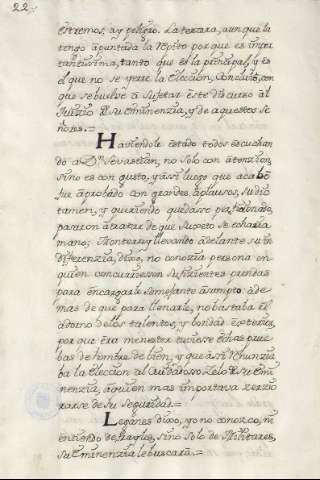 22
estremos, ay peligro. La terzera, aunque la
tengo apuntada la repito porque es impor
tantissima, tanto que es la principal, y es
el que no se yerre la Eleccion, Concluió, con
que se buelve à sujetar este discurso al
Juicio de su Eminenzia, y de aquestos Se
ñores.=
Haviendole estado todos escuchan
do a Dn. Sevastian, no solo con atenzion,
sino es con gusto, y assi luego que acabó
fue aprobado con grandes aplausos, su dic
tamen, y queriendo quedasse
pararon à tratar de que Sugeto se echaria
mano; Monterrey llevando adelante su in
diferenzia, dixo, no conozia persona en
quien concurriessen suficientes prendas
para encargarle semejante asumpto, ade
mas de que para llenarle, no bastaba el
adorno de los talentos, y bondad exterior,
por que era menester tuviesse echas prue
bas de hombre de bien, y que assi renunzia
ba la Eleccion al Cuidadoso Zelo de su Emi
nenzia, à quien mas importava zercio
rarse de su seguridad.=
Leganes dixo, yo no conozco, ni
entiendo de frayles, sino solo de Militares,
su Eminenzia le buscará.=